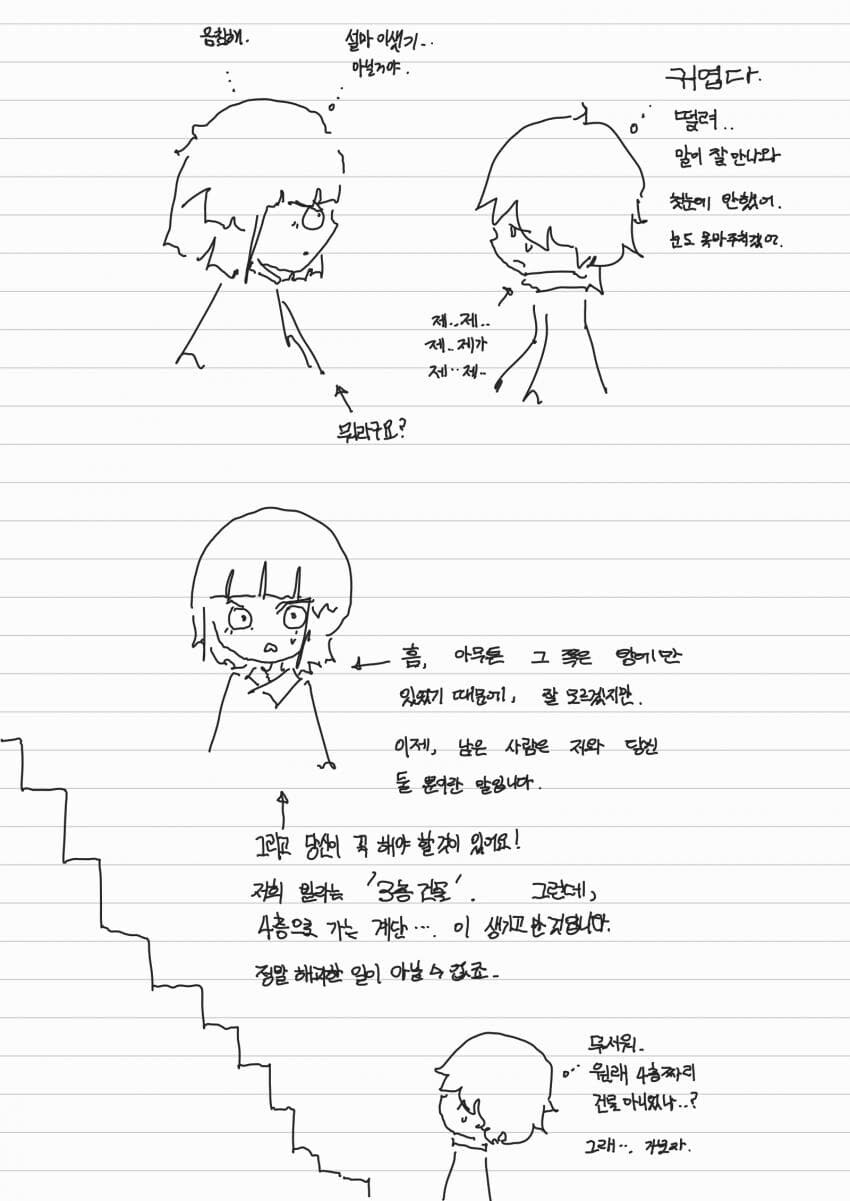 음침해.
설마 이새끼..
아닐거야.
귀엽다.
떨려..
말이 잘 안나와
첫눈에 반했어.
눈도 못마주치겠어.
제..제..
제..제가
제..제..
뭐라구요?
흠, 아무튼 그 쪽은 방에만
있었기 때문에, 잘 모르겠지만.
이제, 남은 사람은 저와 당신
둘 뿐이란 말입니다.
그리고 당신이 꼭 해야 할것이 있어요!
저희 빌라는 '3층 건물'. 그런데,
4층으로 가는 계단.... 이 생기고 만것입니다.
정말 해괴한 일이 아닐 수 없죠..
무서워..
원래 4층짜리
건물 아니었나..?
그래... 가보자.